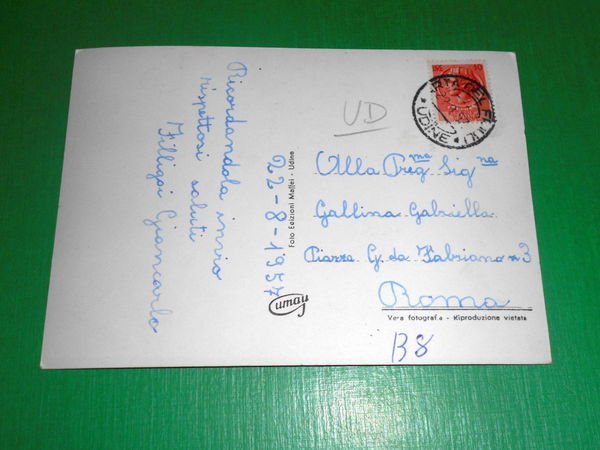 Ricordandola invio
rispettosi saluti
Filligoi Giancarlo
22-8-1957
Foto Edizioni Maffei - Udine
Fumau
UD
10
UDINE
Alla Preg.ma Sig.na
Gallina Gabriella
Piazza G. da Fabriano n 3
Roma
Vera fotografia - Riproduzione vietata
B8